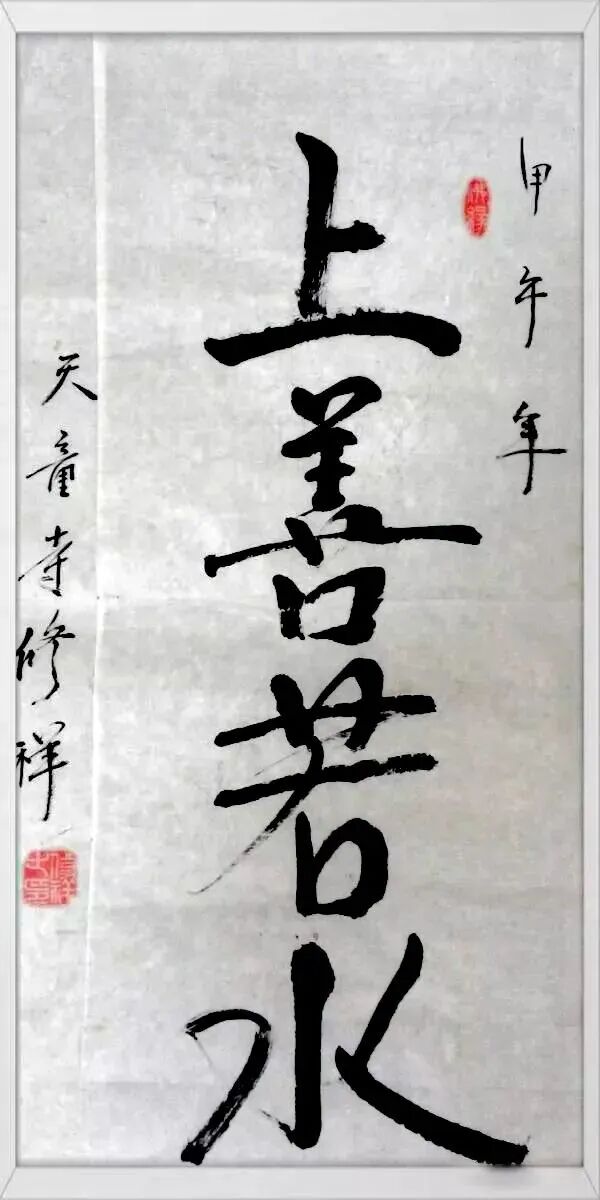 甲午年
上善若水
天童寺修祥